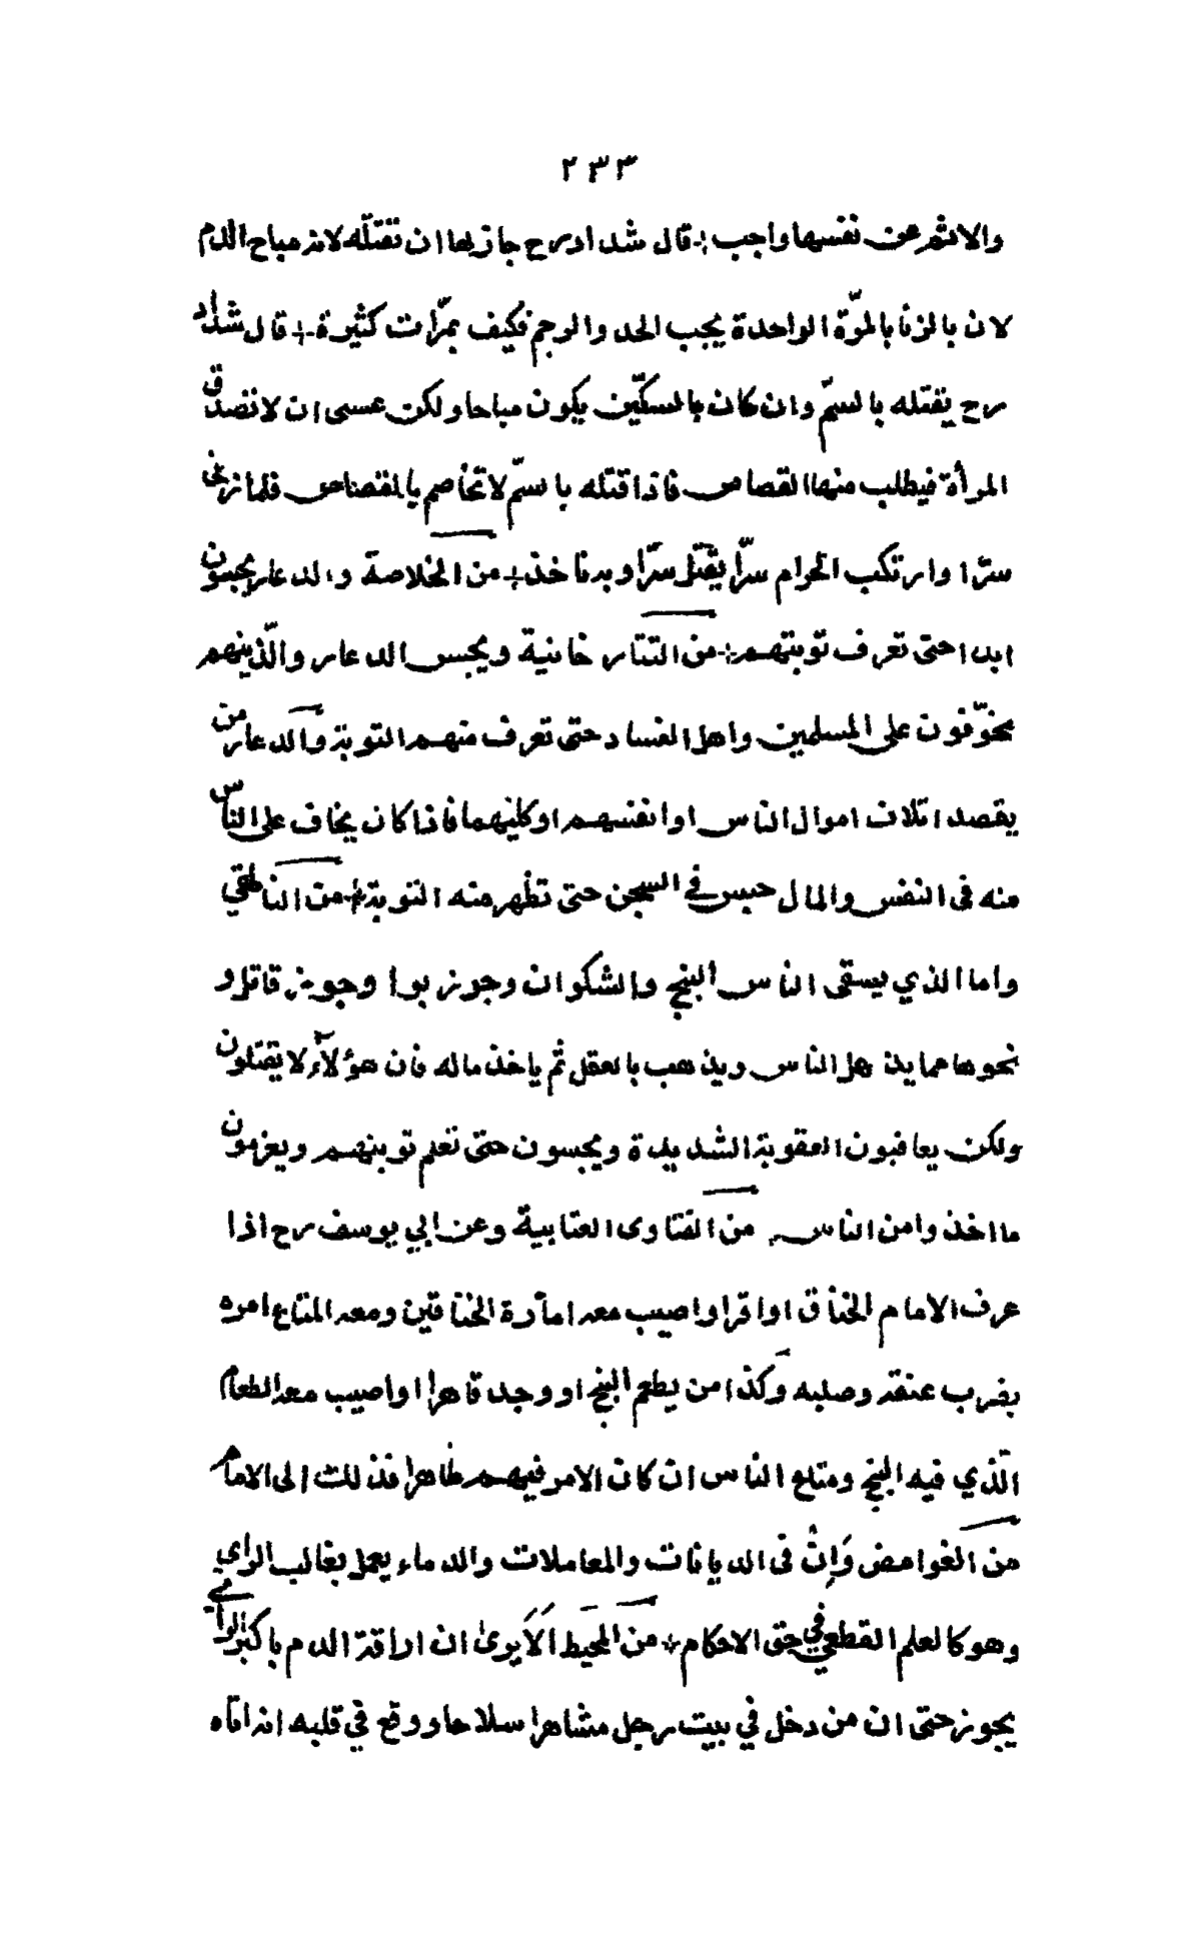 ٢٣٣
والاثم عن نفسها واجب + قال شداد رح جاز لها ان تقتله لانه مباح الدم
لان بالزنا بالمرّة الواحدة يجب الحد والرجم فكيف بمرّات كثيرة + قال شداد
رح يقتله بالسمّ وان كان بالسكّين يكون مباحا ولكن عسى ان لا تصدق
المرأة فيطلب منها القصاص فاذا قتله باسمّ لا تخاصم بالقصاص فلما زنى
سرّا وارتكب الحرام سرّا يقتل سرّا وبه ناخذ + من الخلاصة والدعار يحبسون
ابدا حتى تعرف توبتهم + من التتار خانية ويحبس الدعار والّذينهم
يخوّفون على المسلمين واهل الفساد حتى تعرف منهم التوبة والدعار من
يقصد اتلاف اموال الناس او انفسهم او كليهما فاذا كان يخاف على الناس
منه فى النفس والمال حبس في السجن حتى تظهر منه التوبة + من الناطقي
واما الذي يسقى الناس البنج والشكوان وجوز بوا وجوز قاتل و
نحوها مما يذهل الناس ويذهب بالعقل ثم ياخذ ماله فان هؤلاء لا يقتلون
ولكن يعاقبون العقوبة الشديدة ويحبسون حتى تعلم توبتهم ويغرمون
ما اخذ وامن الناس من الفتاوى العتابية وعن ابي يوسف رح اذا
عرف الامام الخناق او اقر او اصيب معه امارة الخناقين ومعه المتاع امره
بضرب عنقه وصلبه وكذا من يطعم البنج او وجد قاهرا او اصيب معه الطعام
الّذي فيه البنج ومتاع الناس ان كان الامر فيهم ظاهرا فذلك الى الامام
من الغوامض وَاِنْ فى الديانات والمعاملات والدماء يعمل بغالب الراي
وهو كالعلم القطعي في حق الاحكام + من المحيط اَلَا يرىٰ ان اراقة الدم باكبر الراي
يجوز حتى ان من دخل في بيت رجل مشاهرا سلاحا ووقع في قلبه انه اتاه